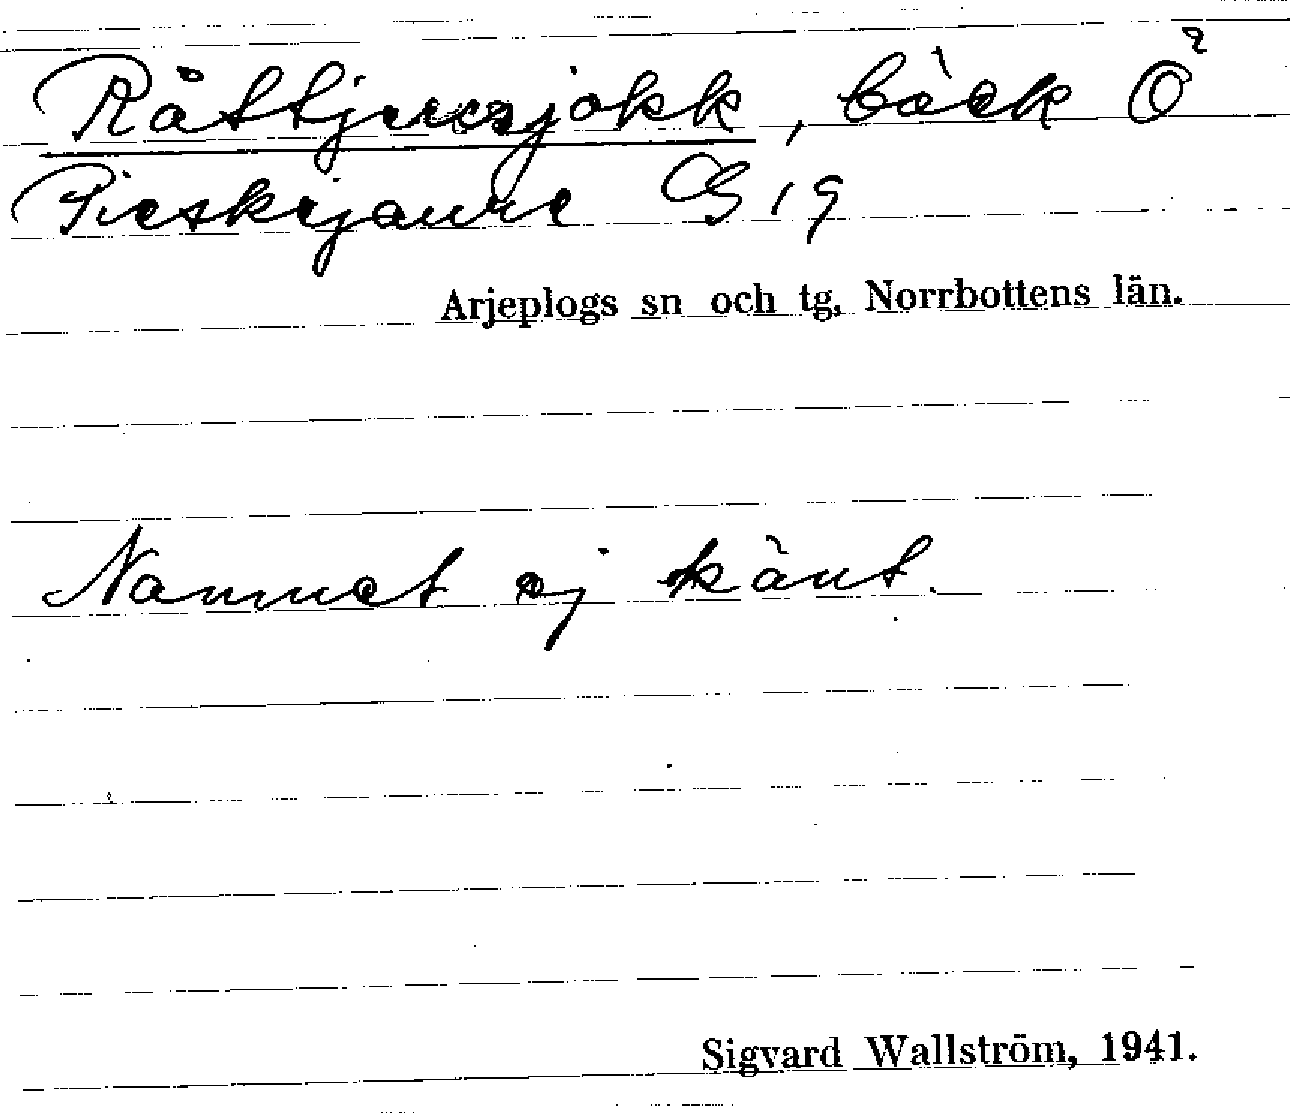 , bäck Ö
Pieskejaure G 19
Arjeplogs sn och tg, Norrbottens län.
Namnet ej känt.
Sigvard Wallström, 1941.